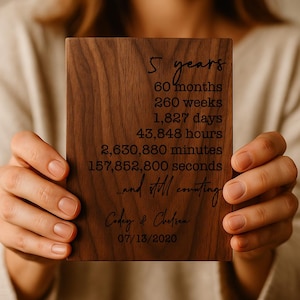 5 years
60 months
260 weeks
1,827 days
43,848 hours
2,630,880 minutes
157,852,800 seconds
and still counting
Coday & Chelsea
07/13/2020